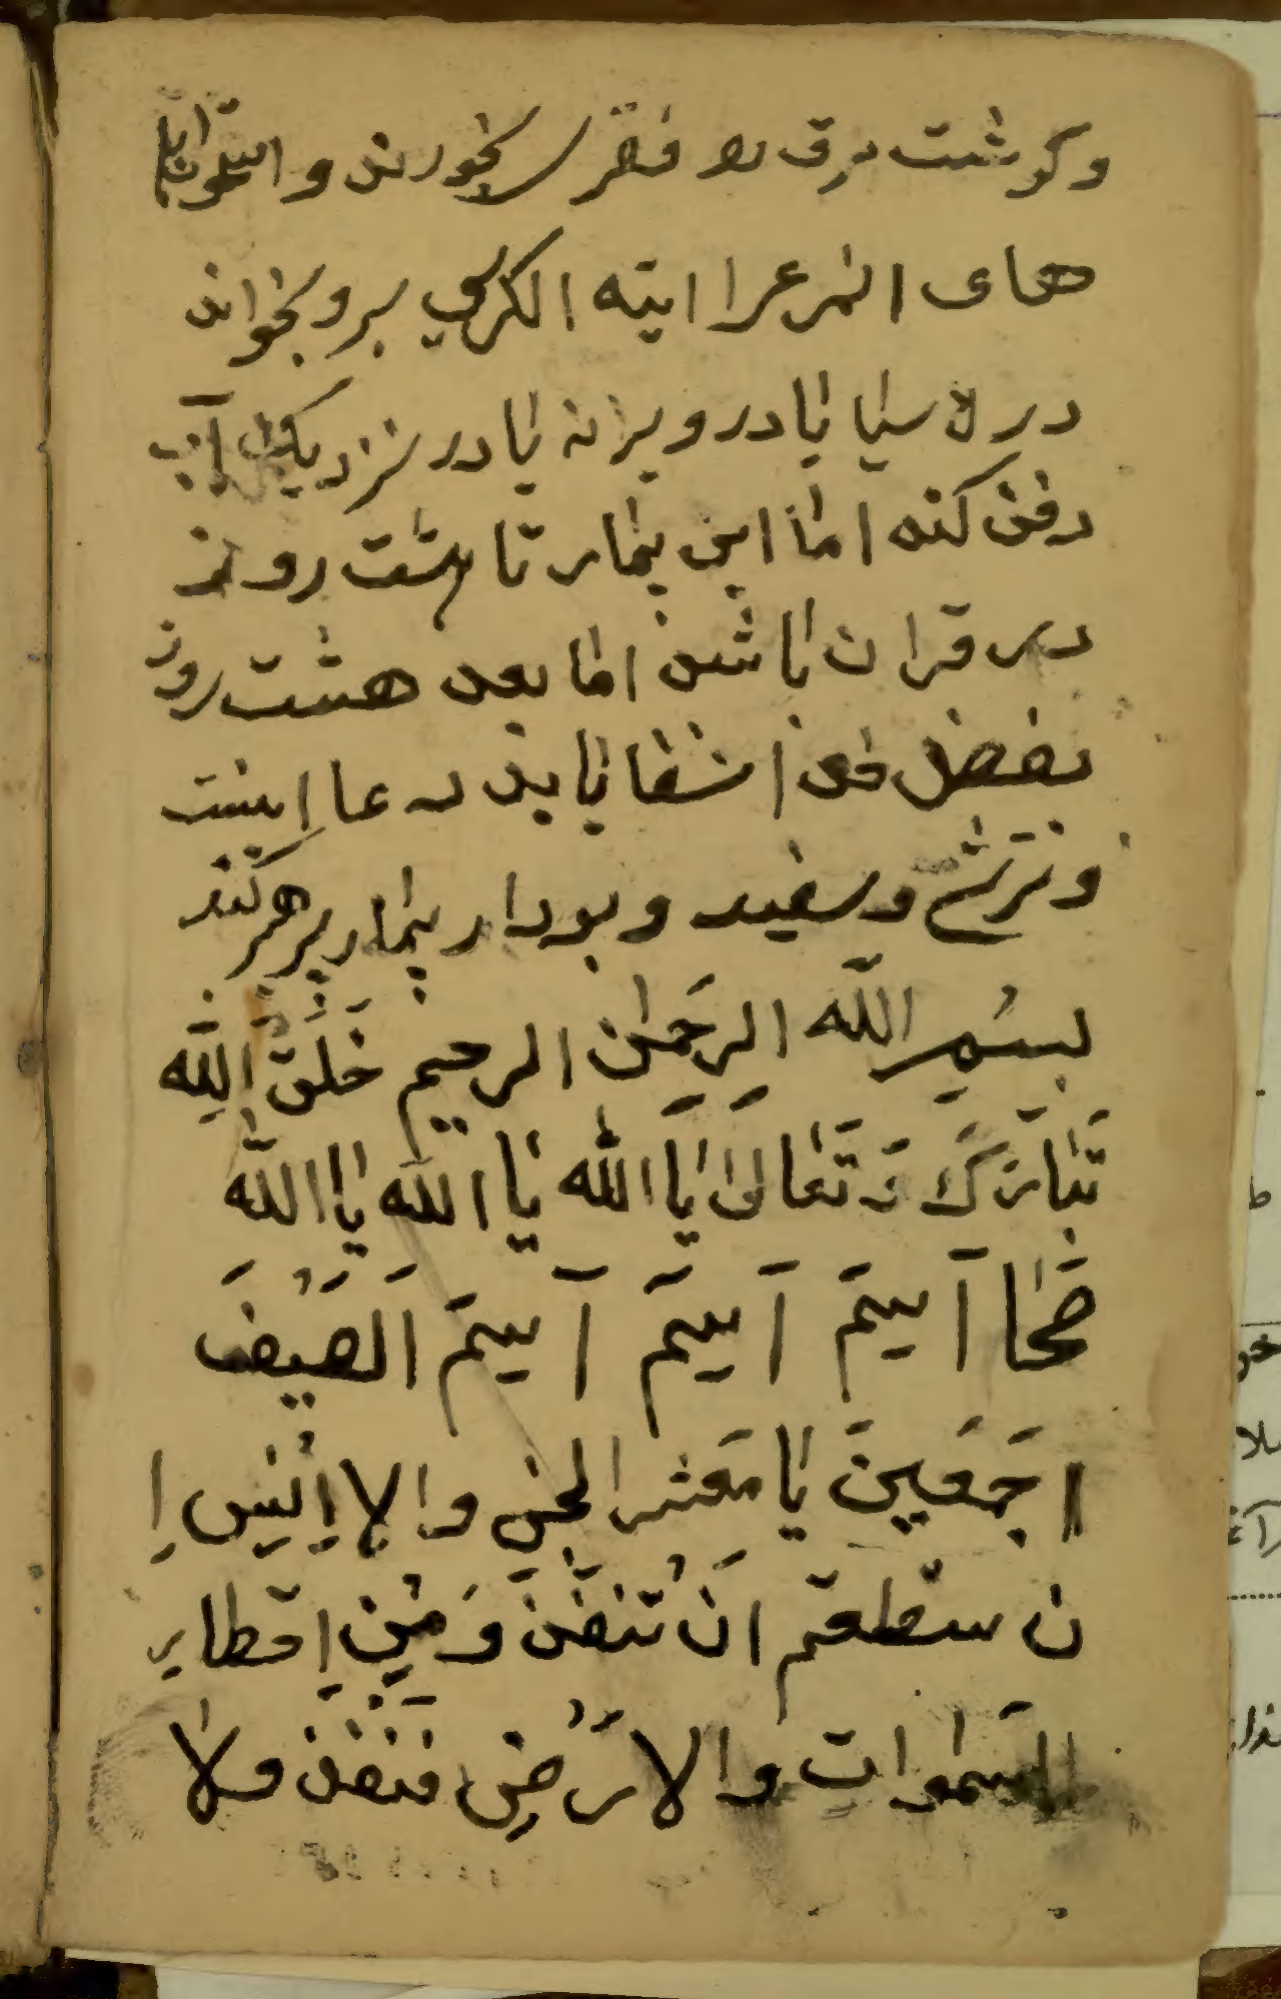 وکوشت مرق را فقر بخورند و استخوان
های المرعرا ایته الکرسی برو بخواند
در لا سیا یا در ویرانه یا در نزدیک آب
دفن کنه اما این بیمار تا هشت روز
در قران باشد اما بعد هشت روز
بفضل خدا شفا یابد دعا اینست
و ترش و سفید و بودار بیمار پرهر کند
بسم الله الرحمن الرحیم خَلَقَ اللّه
تَبٰارَکَ وَ تَعٰالیٰ یٰا الله یٰا الله یٰا الله
آ یتم آ یتم آ یتم الصَیفَ
اجمَعینَ یٰا مَعشر الجنِ والاإنسِ اِ
ن ستطعتم اَنْ تنفذ وَ منِ اِقطار
السموات والارَضِ فنفذ ولا